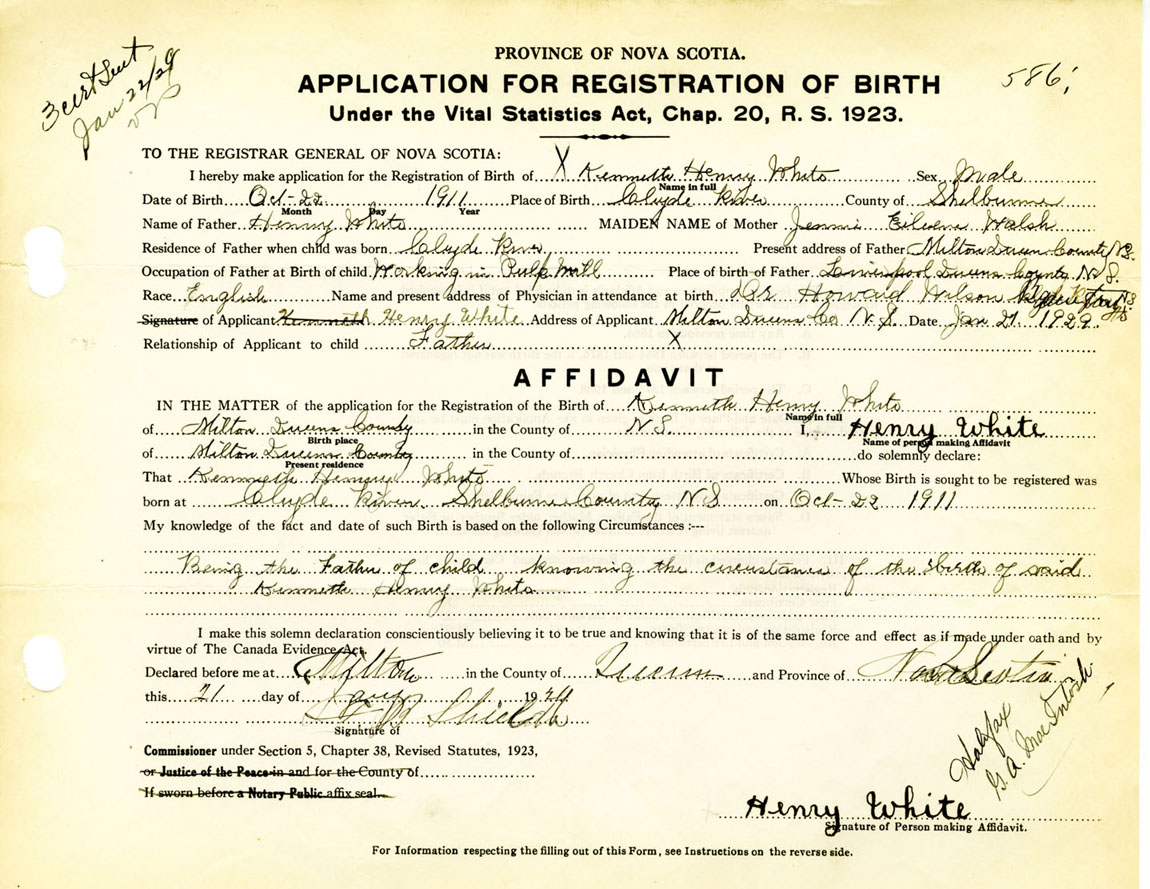 3 cert Sent
Jan 22/29
PROVINCE OF NOVA SCOTIA.
APPLICATION FOR REGISTRATION OF BIRTH
586
Under the Vital Statistics Act, Chap. 20, R. S. 1923.
TO THE REGISTRAR GENERAL OF NOVA SCOTIA:
I hereby make application for the Registration of Birth of X Kenneth Henry White Sex Male
Name in full
Date of Birth Oct-22 1911 Place of Birth Clyde River County of Shelburne
Month Day Year
Name of Father Henry White MAIDEN NAME of Mother Jennie Eileen Walsh
Residence of Father when child was born Clyde River Present address of Father Milton Queens County N.S.
Occupation of Father at Birth of child Working in Pulp Mill Place of birth of Father Liverpool Queens County N.S.
Race English Name and present address of Physician in attendance at birth Dr. Howard Wilson N S
Signature of Applicant Kenneth Henry White Address of Applicant Milton Queens Co N.S. Date Jan 21 1929
Relationship of Applicant to child Father X
AFFIDAVIT
IN THE MATTER of the application for the Registration of the Birth of Kenneth Henry White
Name in full
of Milton Queens County in the County of N.S. I, Henry White
Birth place
Name of person making Affidavit
of Milton Queens County in the County of do solemnly declare:
Present residence
That Kenneth Henry White Whose Birth is sought to be registered was
born at Clyde River Shelburne County N S on Oct-22 1911
My knowledge of the fact and date of such Birth is based on the following Circumstances :---
Being the Father of child knowing the circustance of the birth of said
Kenneth Henry White
I make this solemn declaration conscientiously believing it to be true and knowing that it is of the same force and effect as if made under oath and by
virtue of The Canada Evidence Act.
Declared before me at Milton in the County of Queens and Province of Nova Scotia
this 21 day of Jany 1929
Shields
Signature of
Commissioner under Section 5, Chapter 38, Revised Statutes, 1923,
or Justice of the Peace in and for the County of
If sworn before a Notary Public affix seal
Halifax
G. A. MacIntosh
Henry White
Signature of Person making Affidavit.
For Information respecting the filling out of this Form, see Instructions on the reverse side.